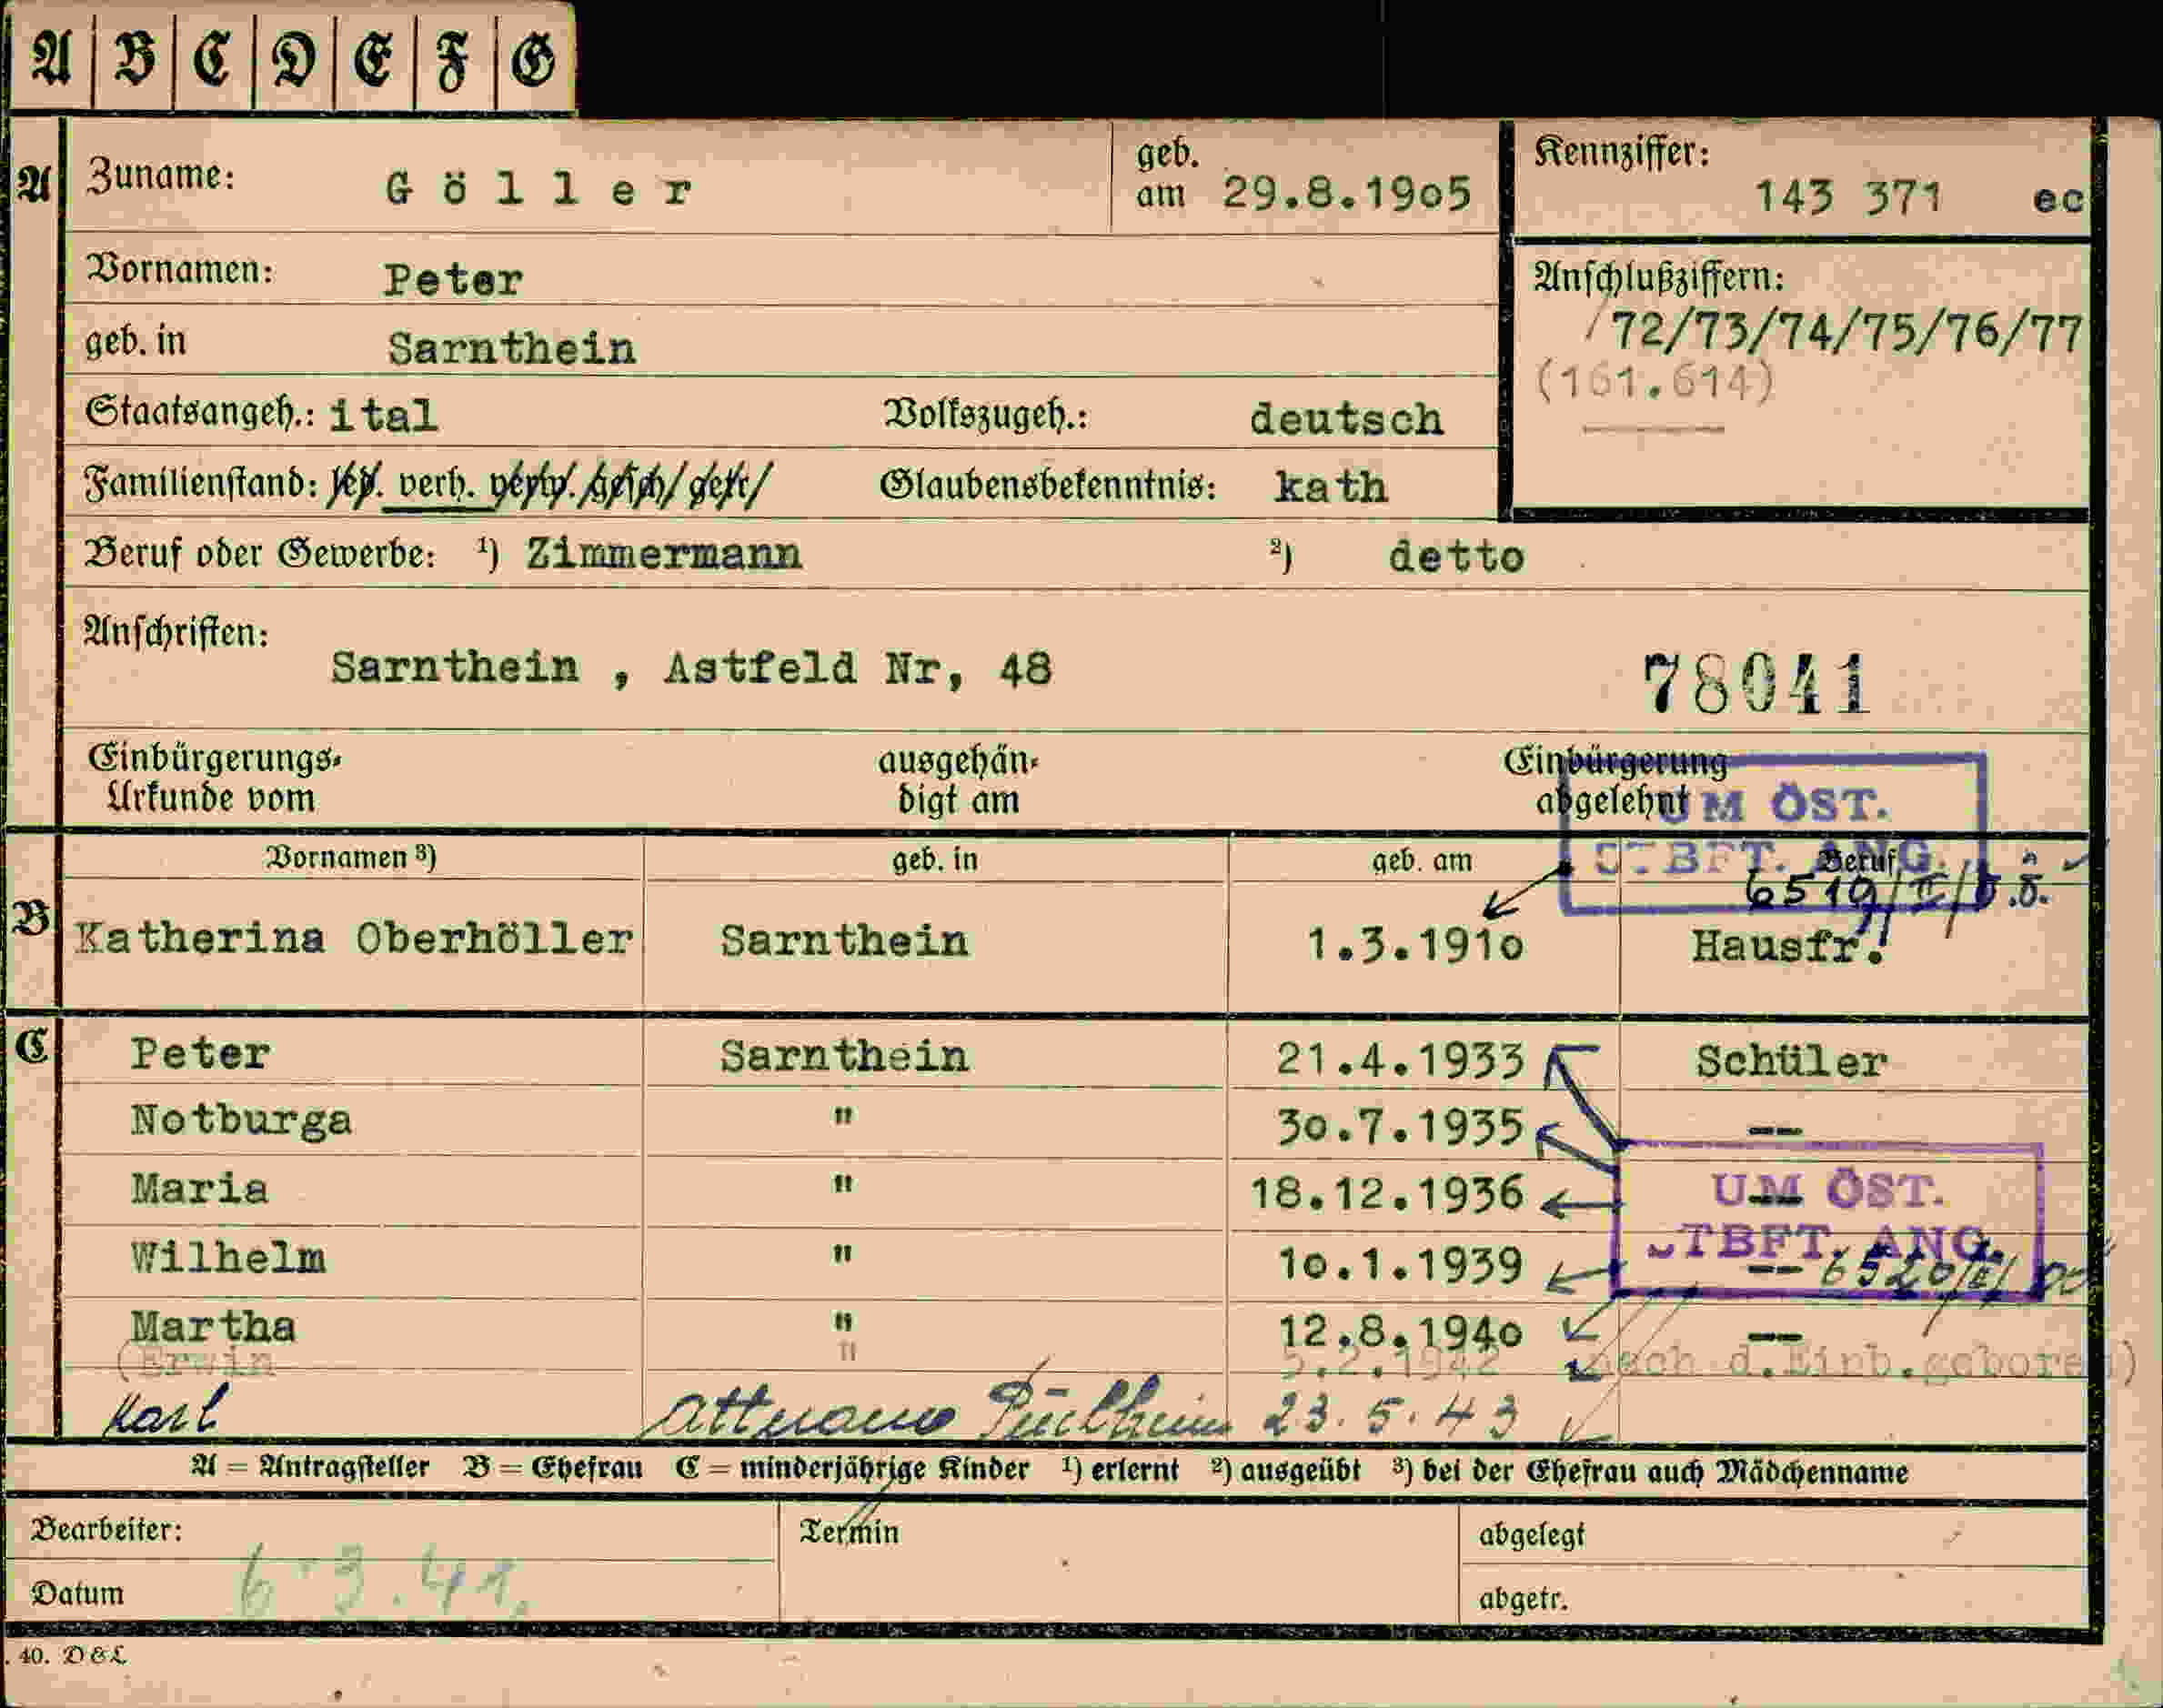 A B C D E F G
A Zuname: Göller geb. am 29.8.1905 Kennziffer: 143 371 ec
Vornamen: Peter Anschlußziffern:
/72/73/74/75/76/77
geb. in Sarnthein
(161.614)
Staatsangeh.: ital Volkszugeh.: deutsch
Familienstand: led. verh. verw. gesch/ getr/ Glaubensbekenntnis: kath
Beruf oder Gewerbe: ¹) Zimmermann ²) detto
Anschriften:
Sarnthein , Astfeld Nr, 48 78041
Einbürgerungs- ausgehän- Einbürgerung
Urkunde vom digt am abgelehnt
UM ÖST.
STBFT. ANG.
Vornamen ³) geb. in geb. am Beruf
6519/II/
B Katherina Oberhöller Sarnthein 1.3.1910 Hausfr.
C Peter Sarnthein 21.4.1933 Schüler
Notburga " 30.7.1935 --
Maria " 18.12.1936 --
UM ÖST.
STBFT. ANG.
Wilhelm " 10.1.1939 -- 6520/II/
Martha " 12.8.1940 --
(Erwin " 5.2.1942 nach d.Einb.geboren)
Karl 23.5.43
A = Antragsteller B = Ehefrau C = minderjährige Kinder ¹) erlernt ²) ausgeübt ³) bei der Ehefrau auch Mädchenname
Bearbeiter: Termin abgelegt
Datum 6.3.41. abgetr.
. 40. D & L